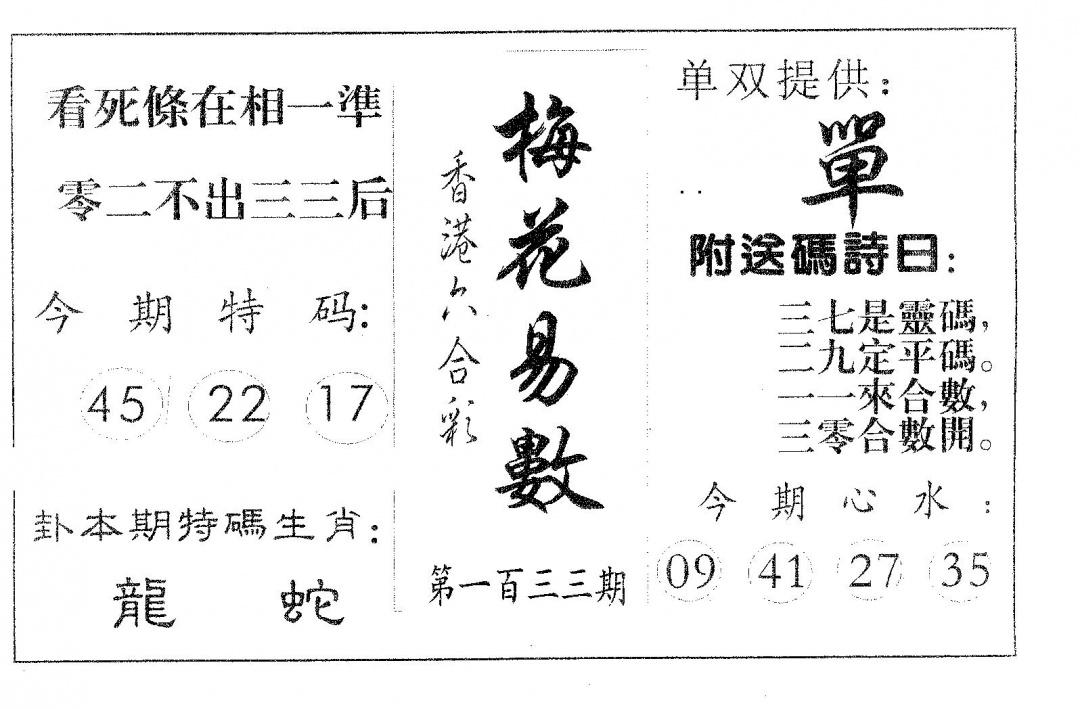 看死條在相一準
零二不出三三后
今期特码:
45 22 17
卦本期特碼生肖:
龍 蛇
梅花易數
香港六合彩
第一百三三期
单双提供:
單
附送碼詩曰:
三七是靈碼,
二九定平碼。
一一來合數,
三零合數開。
今期心水:
09 41 27 35